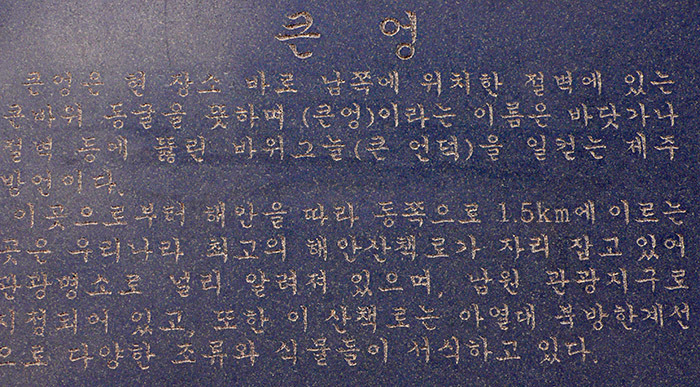 큰 엉
큰엉은 현 장소 바로 남쪽에 위치한 절벽에 있는
큰바위 동굴을 뜻하며 (큰엉)이라는 이름은 바닷가나
절벽 등에 뚫린 바위그늘(큰 언덕)을 일컫는 제주
방언이다.
이곳으로부터 해안을 따라 동쪽으로 1.5km에 이르는
곳은 우리나라 최고의 해안산책로가 자리 잡고 있어
관광명소로 널리 알려져 있으며, 남원 관광지구로
지정되어 있고, 또한 이 산책로는 아열대 북방한계선
으로 다양한 조류와 식물들이 서식하고 있다.